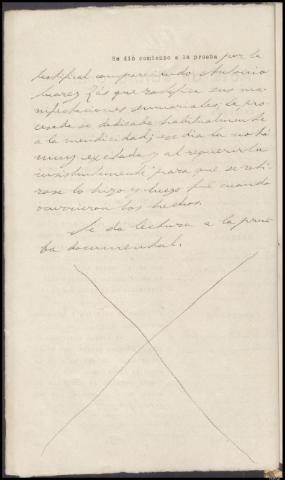 Se dió comienzo a la prueba por la
testifical compareciendo Antonio
Suarez que ratifica sus ma-
nifestaciones sumariales; la pro-
cesada se dedicaba habitualmente
a la mendicidad; ese dia la notó
muy excitada y al requerirla
para que se reti-
rase lo hizo y luego fué cuando
ocurrieron los hechos.
Se da lectura a la prue
ba documental.